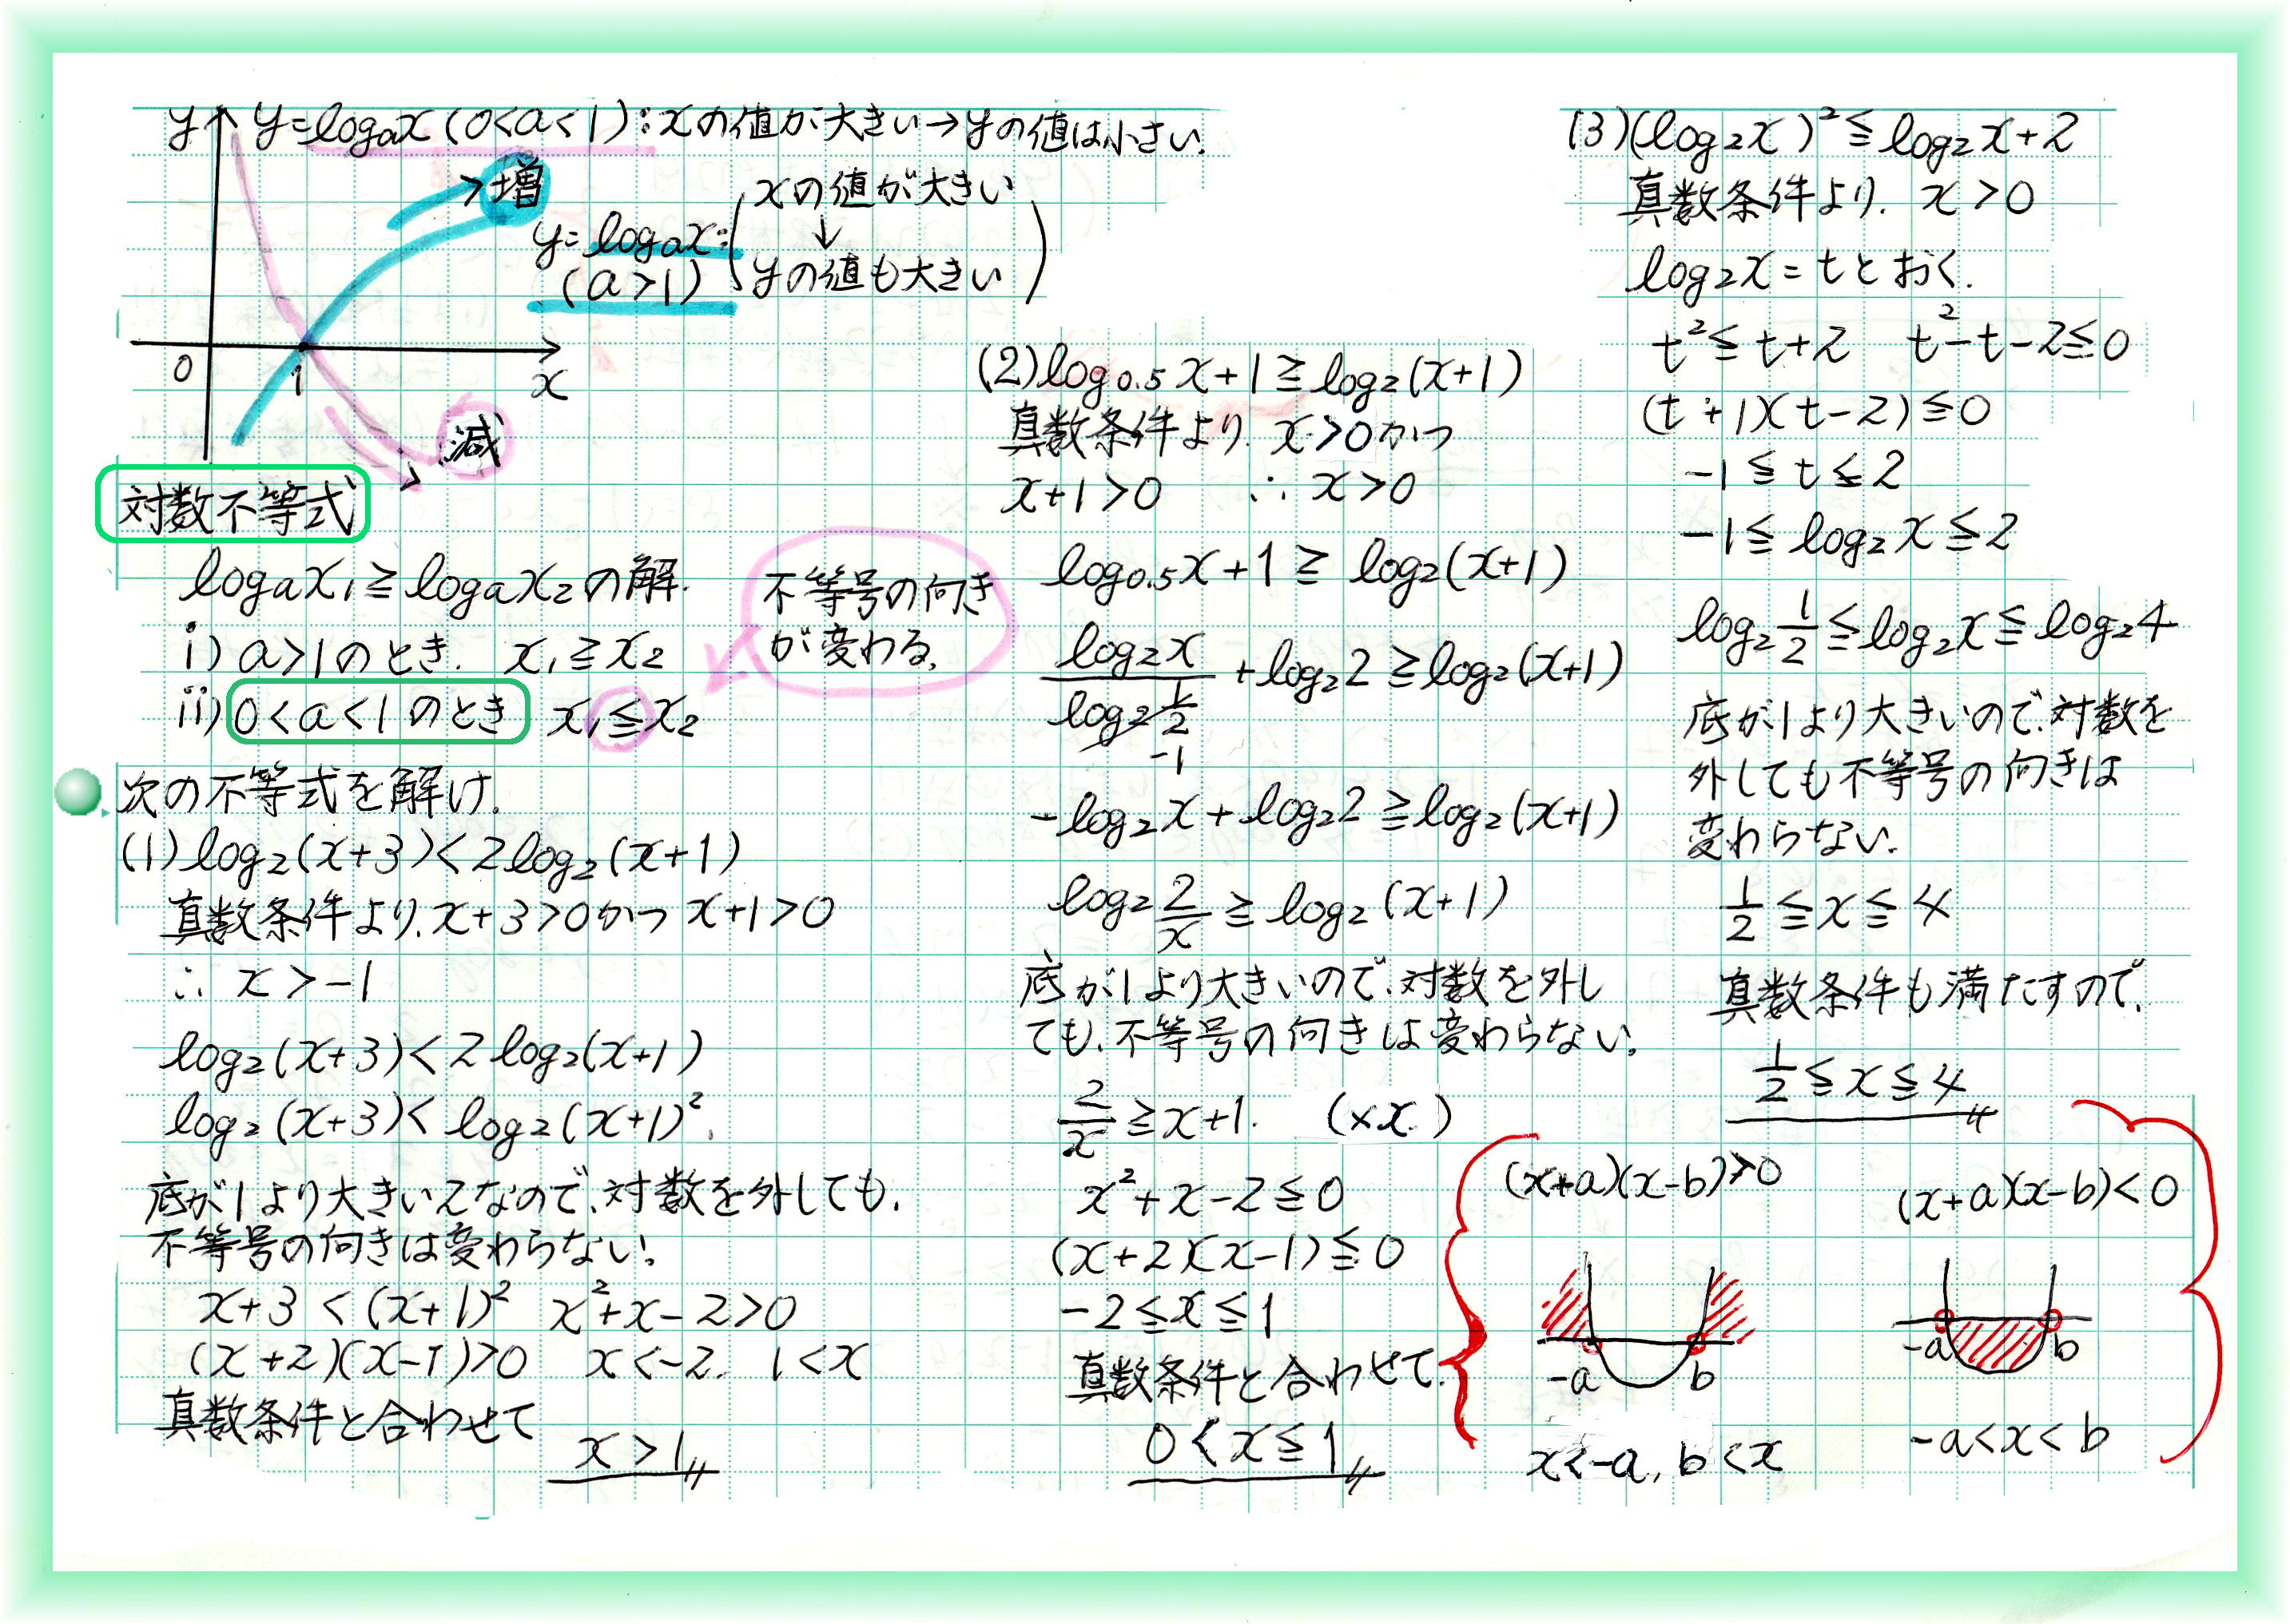 y y=logax(0<a<1):xの値が大きい→yの値は小さい.
増
y=logax:
(a>1)
xの値が大きい
↓
yの値も大きい
0
1
x
減
対数不等式
logax₁≧logax₂の解.
i)a>1のとき. x₁≧x₂
ii)0<a<1のとき x₁≦x₂
不等号の向き
が変わる.
次の不等式を解け.
(1)log₂(x+3)<2log₂(x+1)
真数条件より.x+3>0かつx+1>0
∴ x>-1
log₂(x+3)<2log₂(x+1)
log₂(x+3)<log₂(x+1)².
底が1より大きい2なので、対数を外しても.
不等号の向きは変わらない.
x+3<(x+1)² x²+x-2>0
(x+2)(x-1)>0 x<-2. 1<x
真数条件と合わせて
x>1
(2)log0.5x+1≧log₂(x+1)
真数条件より.x>0かつ
x+1>0 ∴x>0
log0.5x+1≧log₂(x+1)
log₂x/log₂1/2+log₂2≧log₂(x+1)
-1
-log₂x+log₂2≧log₂(x+1)
log₂2/x≧log₂(x+1)
底が1より大きいので、対数を外し
ても、不等号の向きは変わらない.
2/x≧x+1. (×x.)
x²+x-2≦0
(x+2)(x-1)≦0
-2≦x≦1
真数条件と合わせて.
0<x≦1
(3)(log₂x)²≦log₂x+2
真数条件より. x>0
log₂x=tとおく.
t²≦t+2 t²-t-2≦0
(t+1)(t-2)≦0
-1≦t≦2
-1≦log₂x≦2
log₂1/2≦log₂x≦log₂4
底が1より大きいので、対数を
外しても不等号の向きは
変わらない.
1/2≦x≦4
真数条件も満たすので.
1/2≦x≦4
(x+a)(x-b)>0
-a b
x<-a, b<x
(x+a)(x-b)<0
-a b
-a<x<b